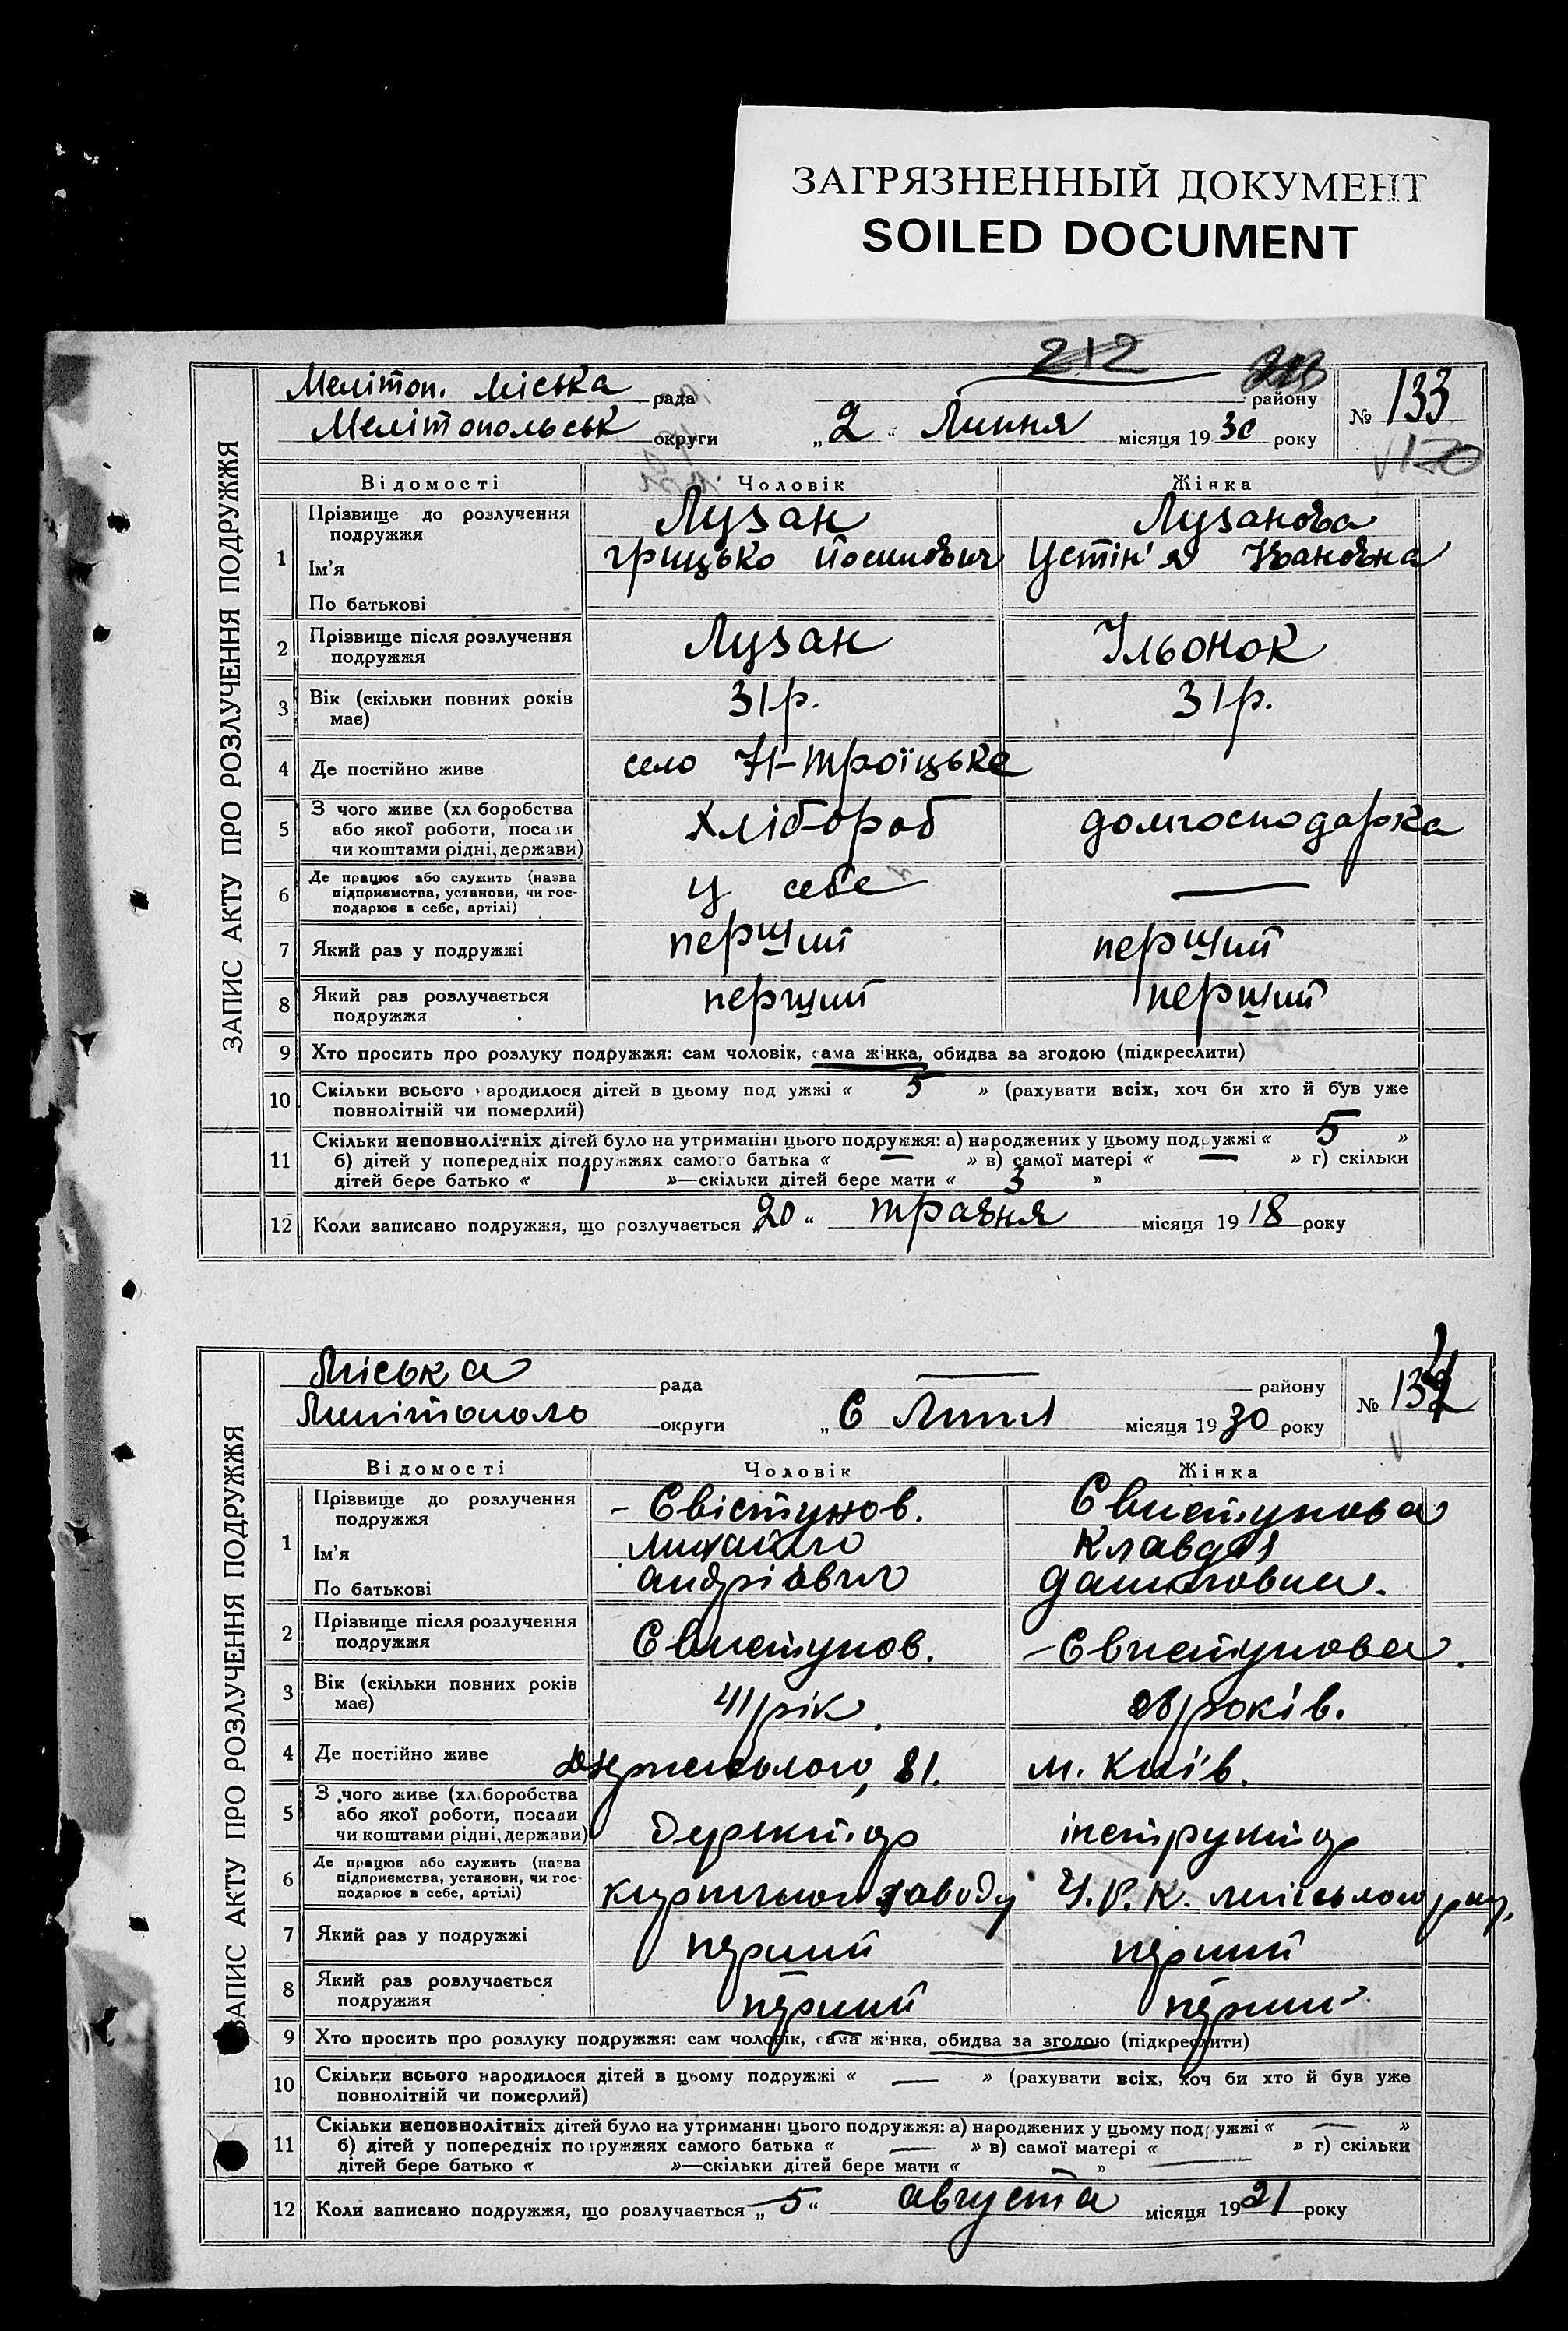 ЗАГРЯЗНЕННЫЙ ДОКУМЕНТ
SOILED DOCUMENT
212
ЗАПИС АКТУ ПРО РОЗЛУЧЕННЯ ПОДРУЖЖЯ
Меліτοп. міська рада району
№ 133
Мелітопольськ округи „2“ Липня місяця 1930 року
Відомості Чоловік Жінка
1 Прізвище до розлучення подружжя Лузан Лузанова
Ім'я Грицько Йосипович Устін'я Івановна
По батькові
2 Прізвище після розлучення подружжя Лузан Ільонок
3 Вік (скільки повних років має) 31 р. 31 р.
4 Де постійно живе село Н-Троїцьке
5 З чого живе (хл боробства або якої роботи, посади чи коштами рідні, держави) хлібороб домгосподарка
6 Де працює або служить (назва підприємства, установи, чи господарює в себе, артілі) у себе —
7 Який раз у подружжі перший перший
8 Який раз розлучається подружжя перший перший
9 Хто просить про розлуку подружжя: сам чоловік, сама жінка, обидва за згодою (підкреслити)
10 Скільки всього народилося дітей в цьому подружжі « 5 » (рахувати всіх, хоч би хто й був уже
повнолітній чи померлий)
11 Скільки неповнолітніх дітей було на утриманні цього подружжя: а) народжених у цьому подружжі « 5 »
б) дітей у попередніх подружжях самого батька « — » в) самої матері « — » г) скільки
дітей бере батько « 1 »—скільки дітей бере мати « 3 »
12 Коли записано подружжя, що розлучається „20“ травня місяця 1918 року
ЗАПИС АКТУ ПРО РОЗЛУЧЕННЯ ПОДРУЖЖЯ
Міська рада — району
№ 134
Мелітополь округи „6 Липня місяця 1930 року
Відомості Чоловік Жінка
1 Прізвище до розлучення подружжя – Свістунов. Свистунова
Ім'я Михайло Клавдія
По батькові Андріевич
2 Прізвище після розлучення подружжя Свистунов. – Свистунова.
3 Вік (скільки повних років має) 41 рік. 28 років.
4 Де постійно живе 81. м. Київ.
5 З чого живе (хл боробства або якої роботи, посади чи коштами рідні, держави) Директор інструктор
6 Де працює або служить (назва підприємства, установи, чи господарює в себе, артілі) заводу
7 Який раз у подружжі перший перший
8 Який раз розлучається подружжя перший перший
9 Хто просить про розлуку подружжя: сам чоловік, сама жінка, обидва за згодою (підкреслити)
10 Скільки всього народилося дітей в цьому подружжі « — » (рахувати всіх, хоч би хто й був уже
повнолітній чи померлий)
11 Скільки неповнолітніх дітей було на утриманні цього подружжя: а) народжених у цьому подружжі « — »
б) дітей у попередніх подружжях самого батька « — » в) самої матері « — » г) скільки
дітей бере батько « »—скільки дітей бере мати « »
12 Коли записано подружжя, що розлучається „5“ августа місяця 1921 року